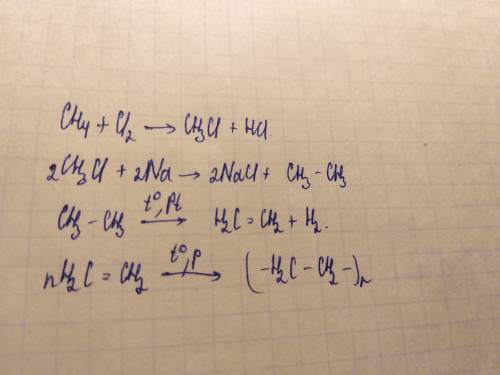 CH₄ + Cl₂ → CH₃Cl + HCl.
2CH₃Cl + 2Na → 2NaCl + CH₃ – CH₃
CH₃ – CH₃ t⁰, Pt → H₂C = CH₂ + H₂.
nH₂C = CH₂ t⁰, p → (–H₂C – CH₂–)ₙ